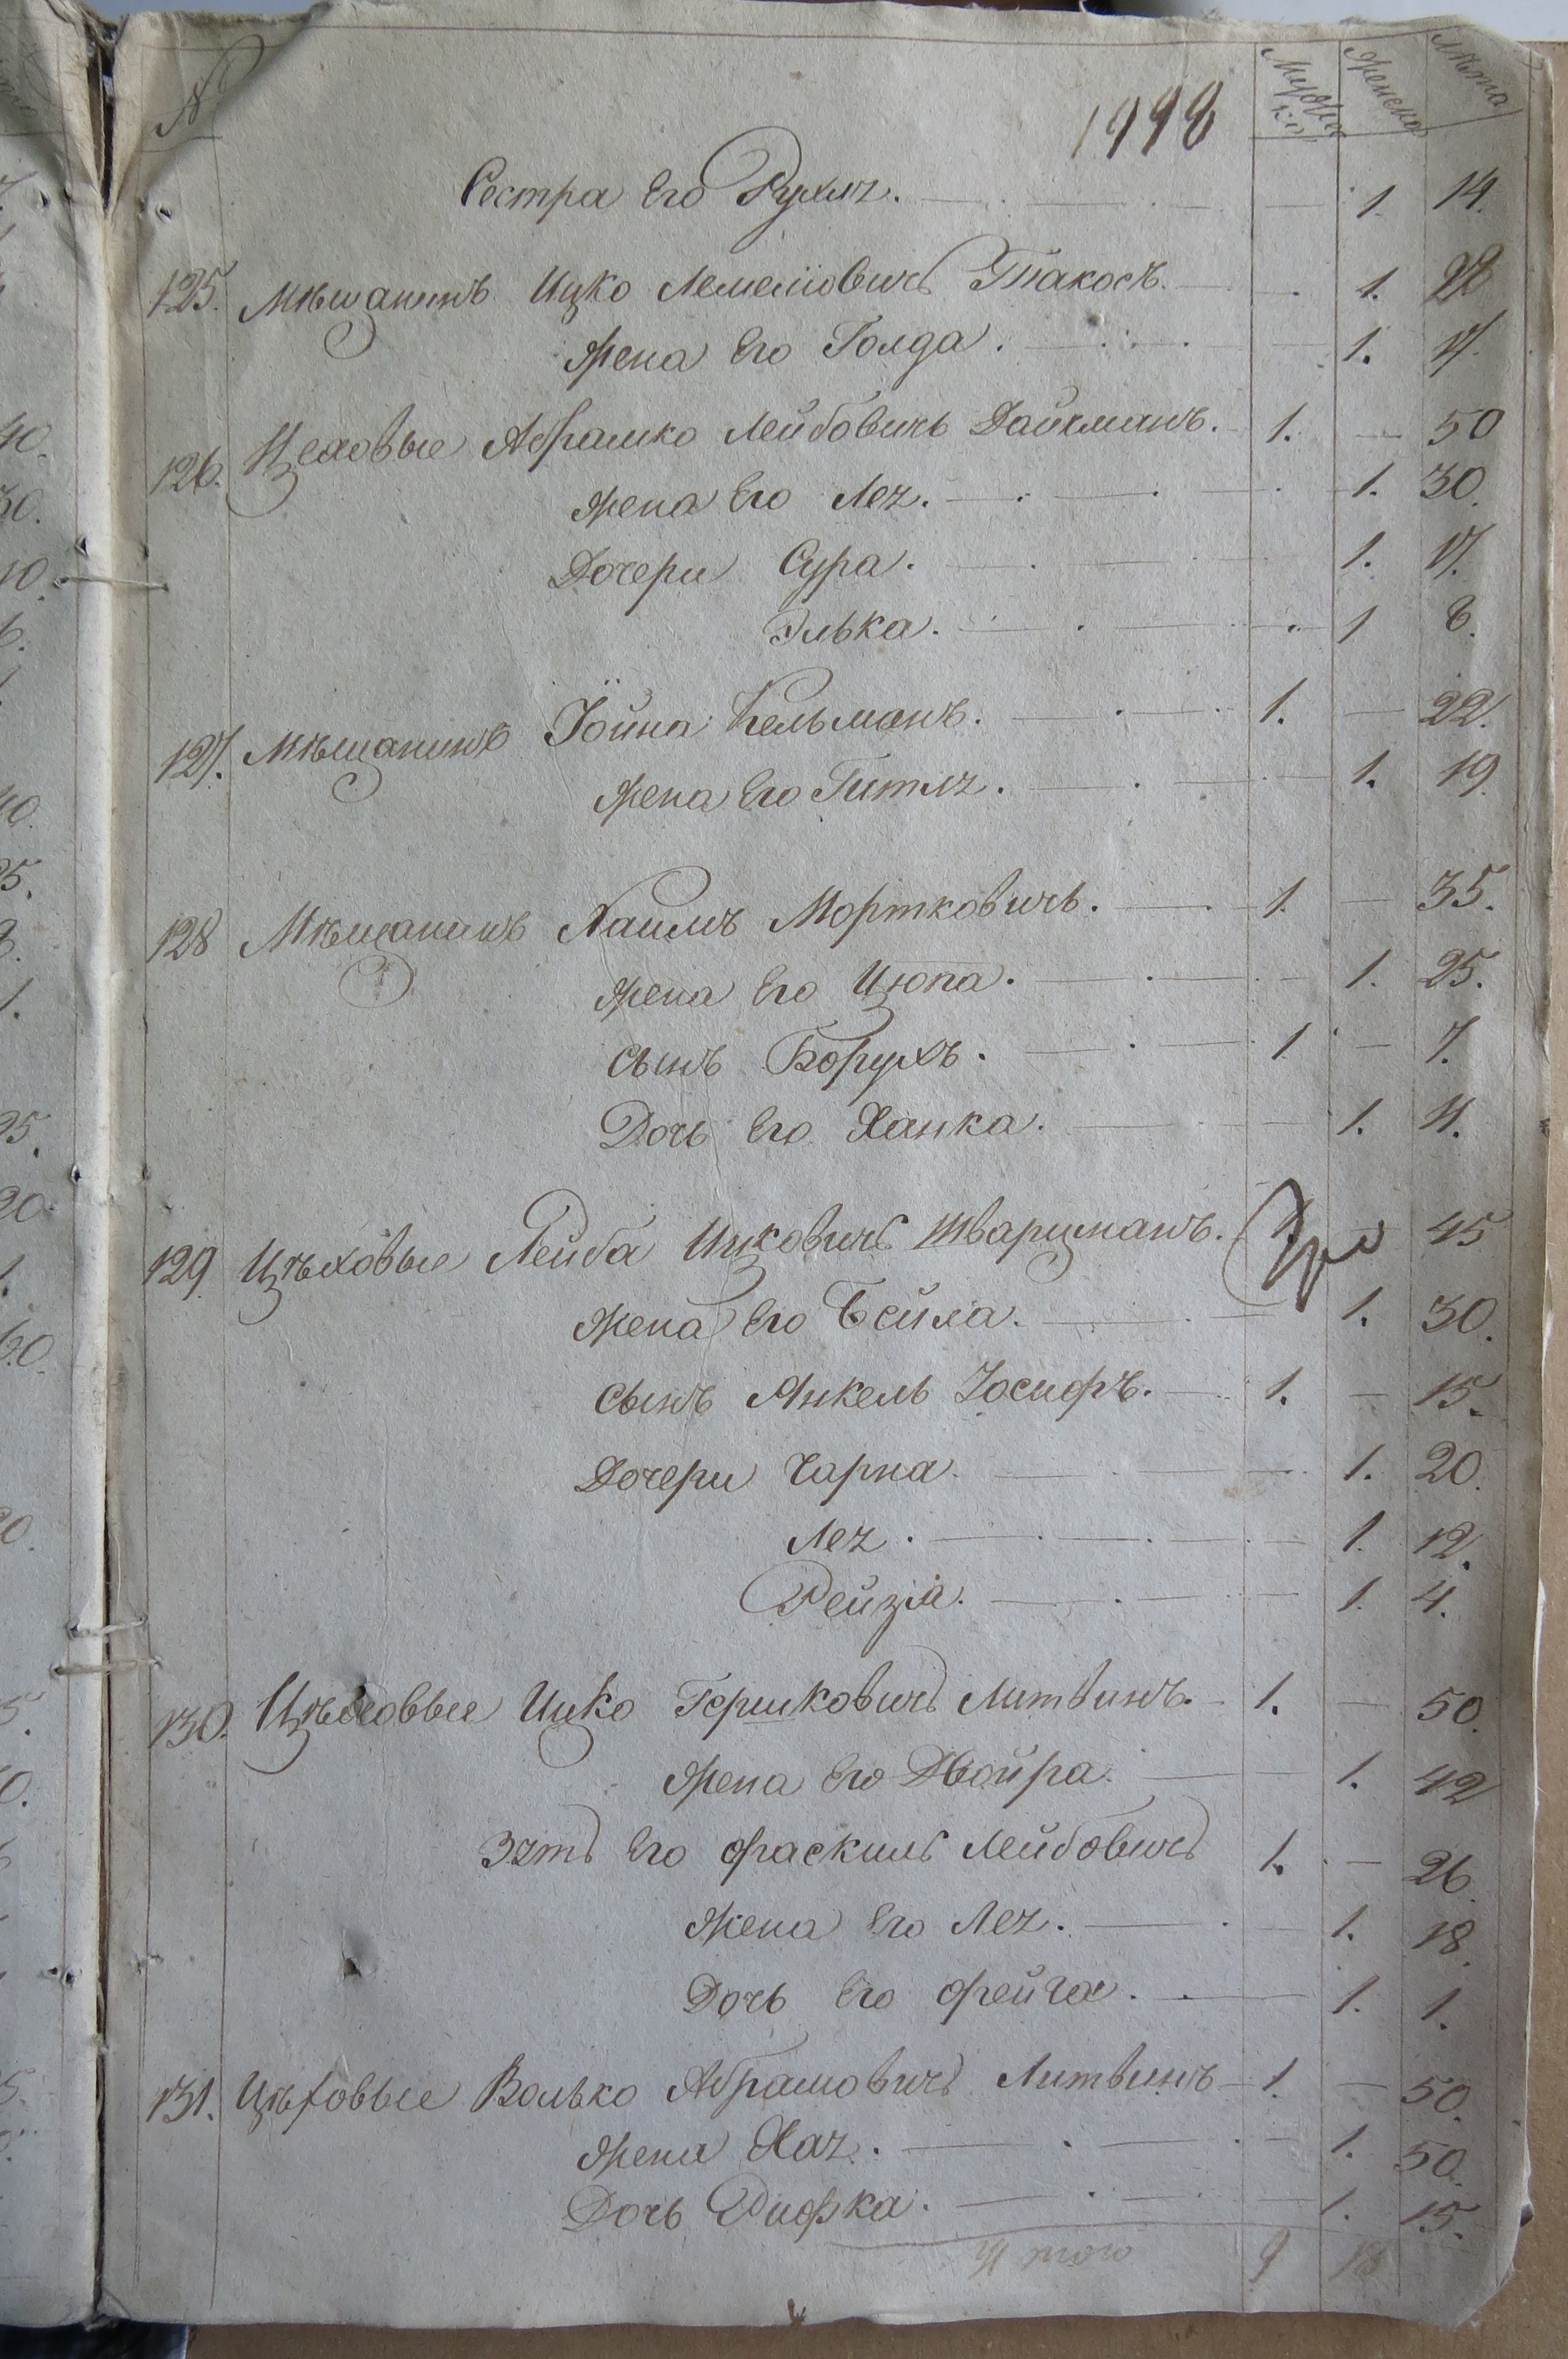 N Мужеска Женска Лѣта
1998
Сестра Его Рухля. 1. 14.
125. Мѣщанинъ Ицко Лемелiовичъ Такосъ. 1. 28
Жена Его Голда. 1. 17.
126. Цеховые Абрамко Лейбовичъ Дайчманъ. 1. — 50
Жена Его Лея. 1. 30.
Дочери Сура. 1. 17.
Элька. 1 8.
127. Мѣщанинъ Iойна Кельманъ. 1. — 22.
Жена Его Гитля. 1. 19.
128 Мѣщанинъ Хаимъ Мортковичъ. 1. — 35.
Жена Его Цюпа. 1. 25.
Сынъ Борухъ. 1 — 7.
Дочь Его Ханка. 1. 4.
129. Цѣховые Лейба Ицковичъ Шварцманъ. 45
Жена Его Бейла. 1. 30.
Сынъ Янкель Iосифъ. 1. — 15.
Дочери Чарна. 1. 20.
Лея. 1. 12.
Рейзiа. 1. 4.
130. Цѣховые Ицко Гершковичъ Литвинъ. 1. — 50.
Жена Его Двойра. 1. 42
Зять Его Фраскиль Лейбовичъ 1. — 26.
Жена Его Лея. 1. 18.
Дочь Его Фейга. 1. 1.
131. Цѣховые Волько Абрамовичъ Литвинъ 1. — 50.
Жена Хая. 1. 50.
Дочь Рифка. 1. 15.
Итого 9 18